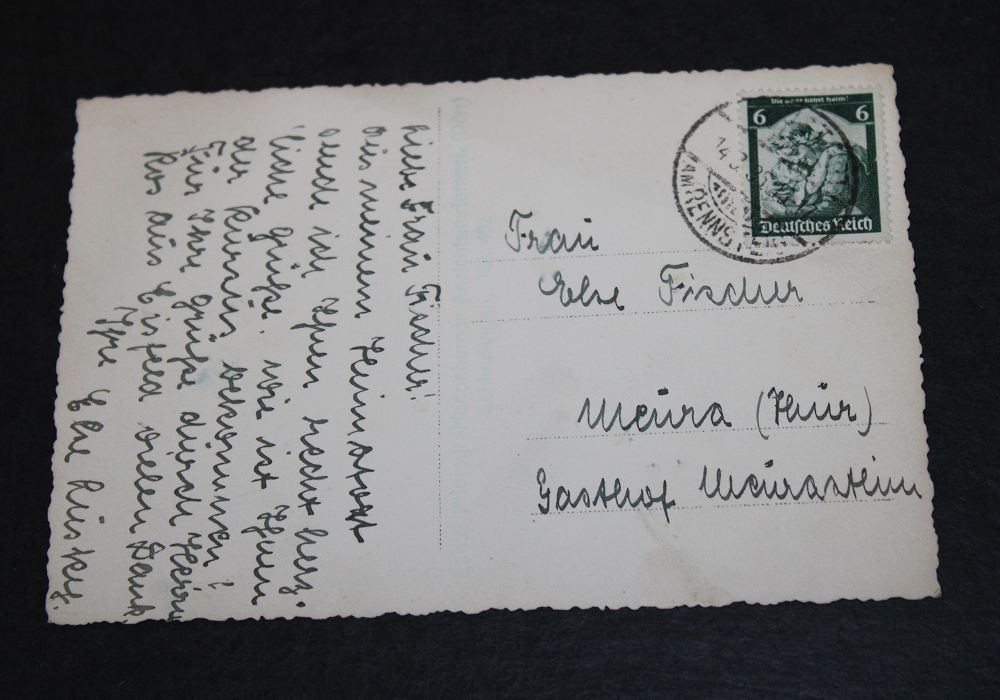 Liebe Frau Fischer!
Aus meinem Heimatort
sende ich Ihnen recht herz-
liche Grüße. Wie ist Ihnen
die bekommen?
Für Ihre Grüße durch Herrn
aus Eisfeld vielen Dank
Ihre Else
Die Saar kehrt heim!
6 6
Deutsches Reich
14.3.
AM RENNST
Frau
Else Fischer
Meura (Thür)
Gasthof Meurastein